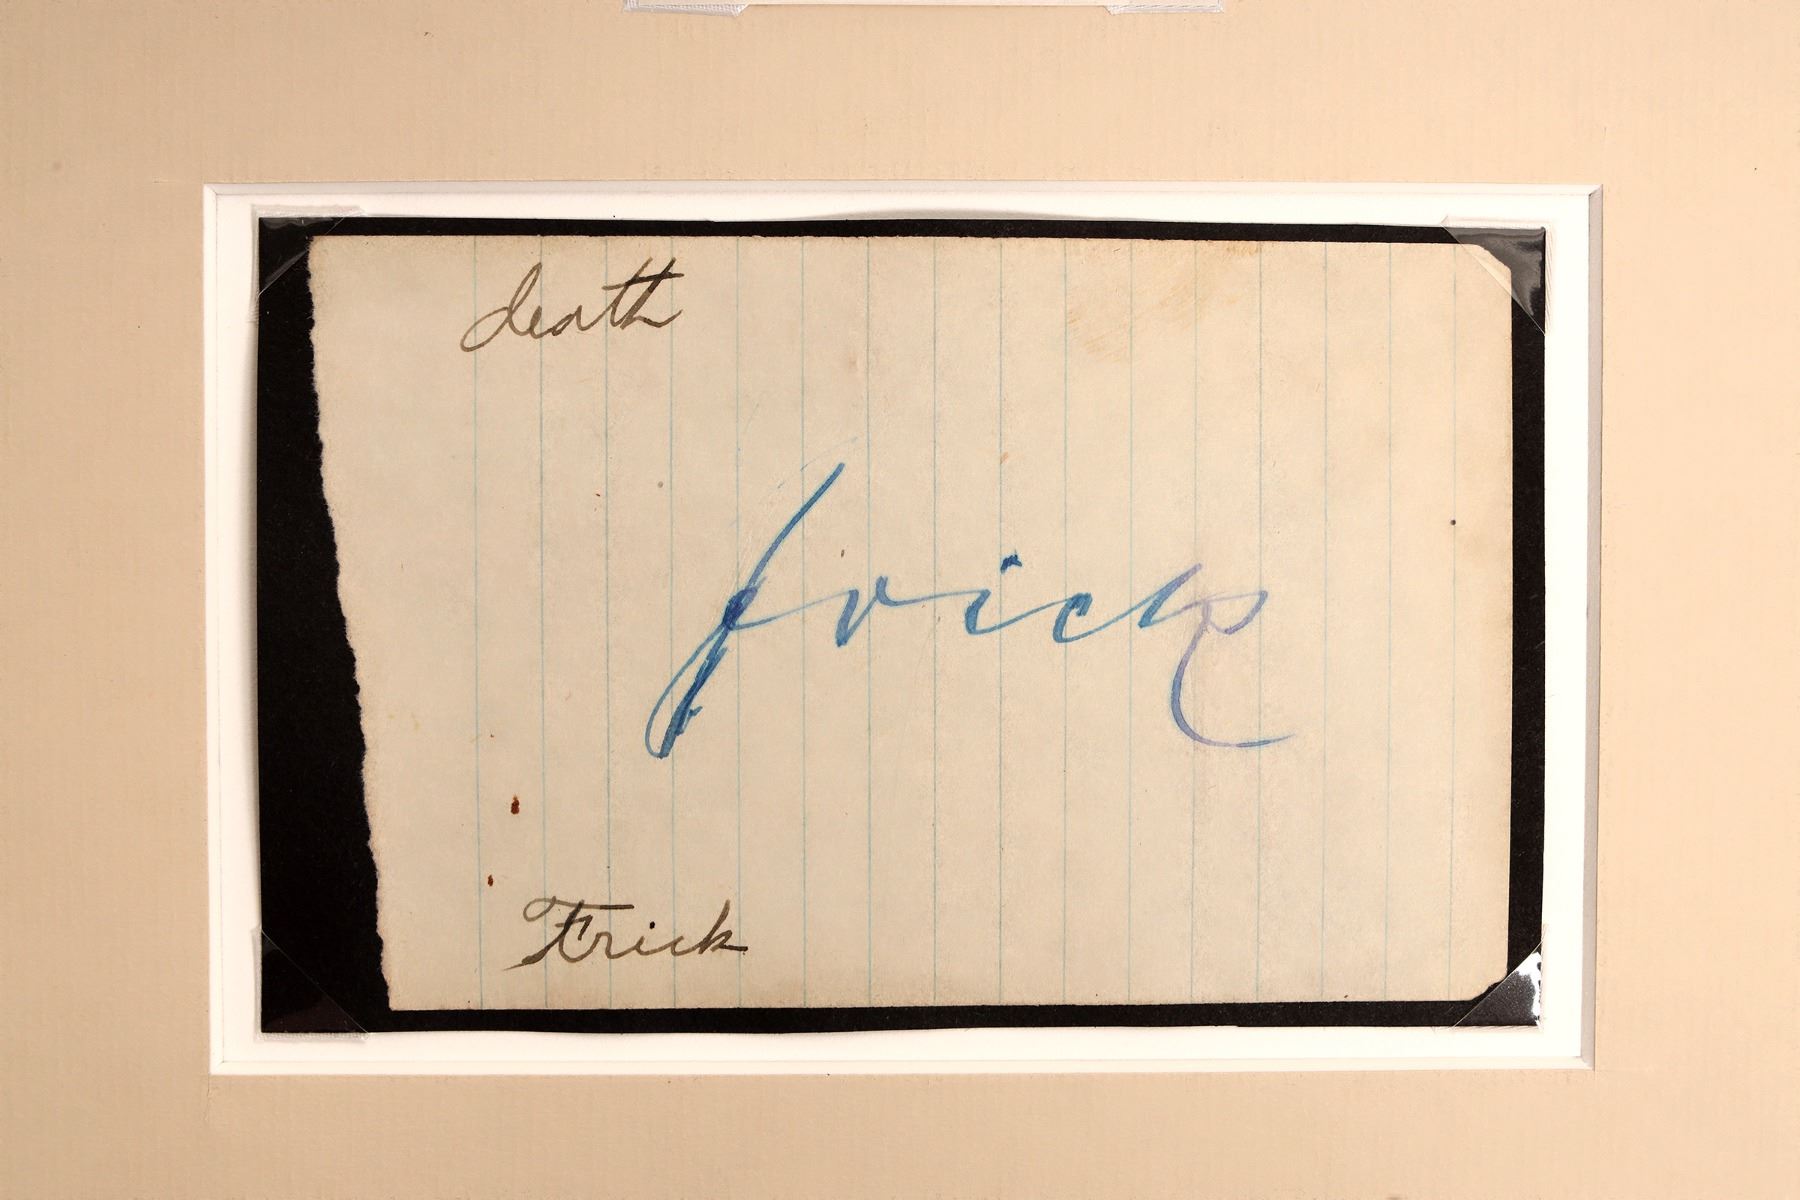 death
frick
Frick